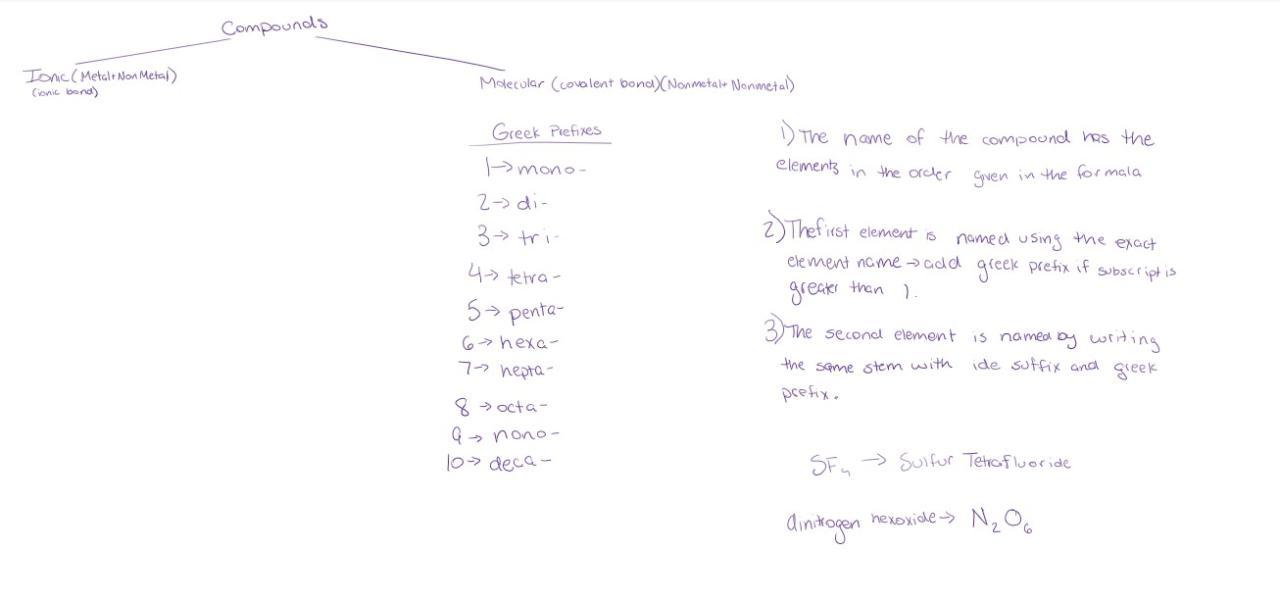 Compounds
Ionic (Metal+NonMetal)
(ionic bond)
Molecular (covalent bond)(Nonmetal+ Nonmetal)
Greek Prefixes
1→mono-
2→ di-
3→ tri-
4→ tetra-
5→ penta-
6→ hexa-
7→ hepta-
8→ octa-
9→ nono-
10→ deca-
1) The name of the compound has the
elements in the order given in the formala
2) The first element is named using the exact
element name→ add greek prefix if subscript is
greater than 1.
3) The second element is named by writing
the same stem with ide suffix and greek
prefix.
SF₄ → Sulfur Tetrafluoride
dinitrogen hexoxide→ N₂O₆